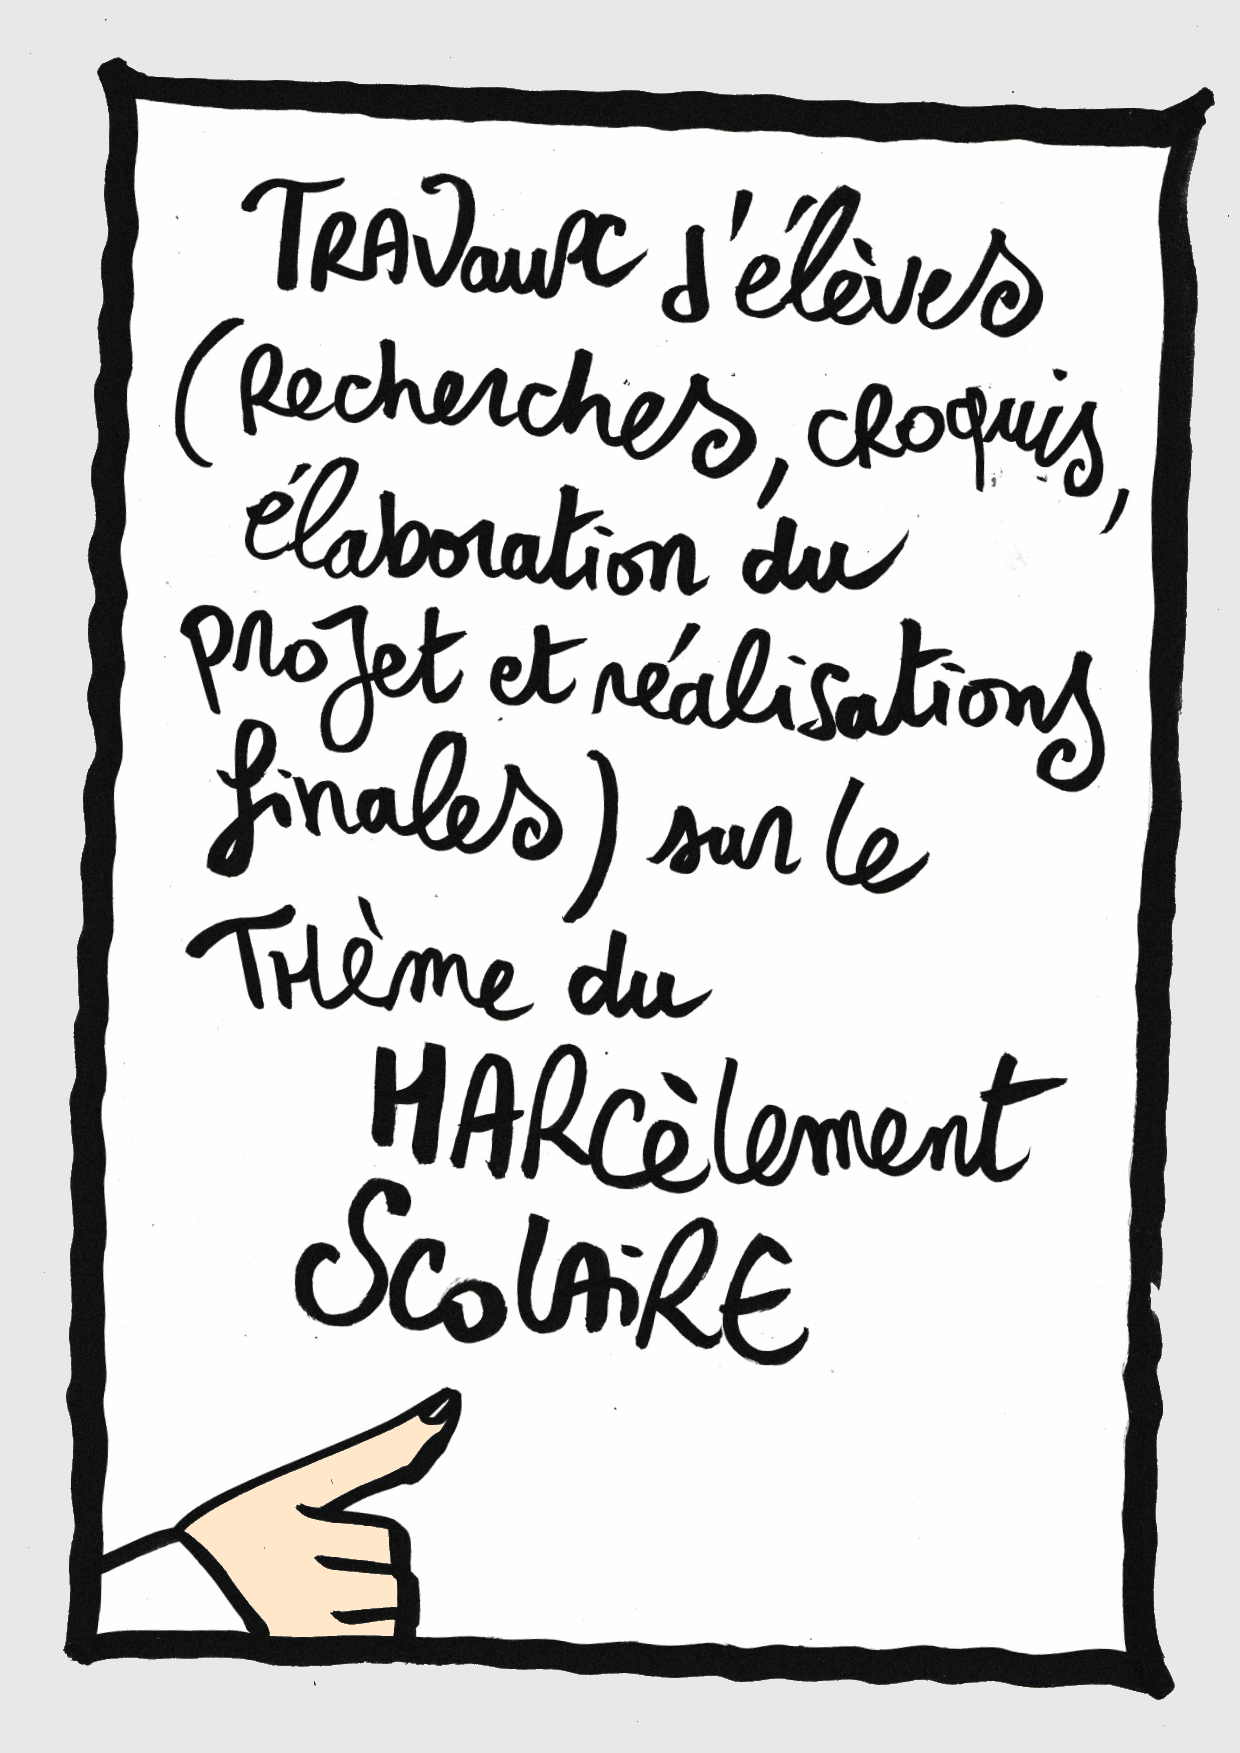 TRAVaux d'élèves
(Recherches, croquis,
élaboration du
proJet et réalisations
finales) sur le
THème du
HARCèlement
ScolAiRE